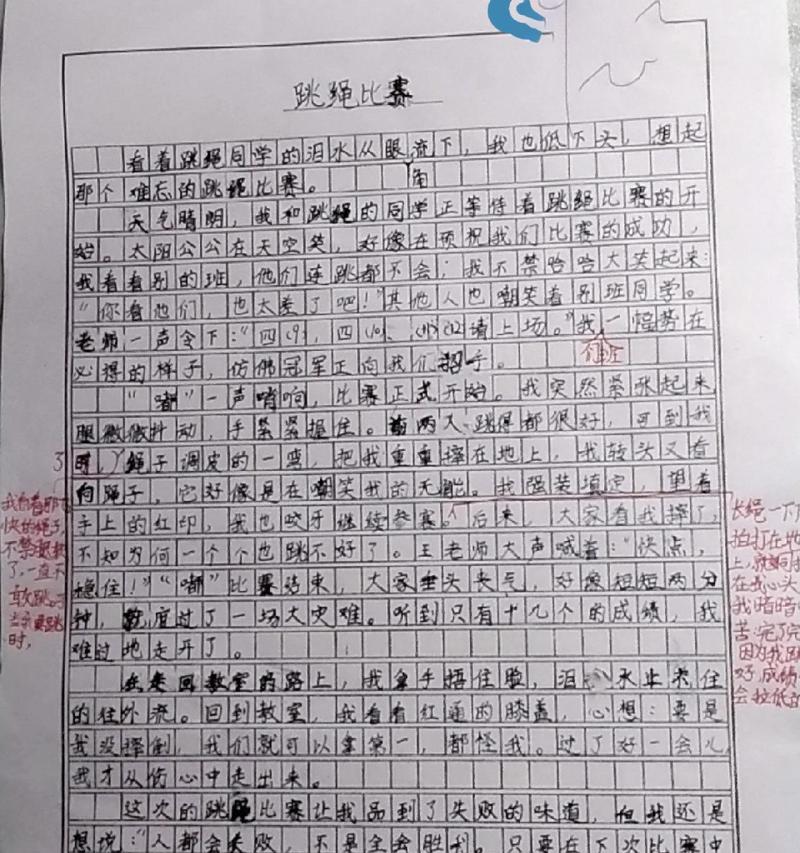 跳绳比赛
看着跳绳同学的泪水从眼流下,我也低下头,想起
角
那个难忘的跳绳比赛。
天气晴明,我和跳绳的同学正等待着跳绳比赛的开
始。太阳公公在天空笑,好像在预祝我们比赛的成功,
我看看别的班,他们连跳都不会;我不禁哈哈大笑起来:
“你看他们,也太差了吧!”其他人也嘲笑着别班同学。
老师一声令下:“四(9),四(10)、(11)(12)请上场。”我一幅势在
必得的样子,仿佛冠军正向我们招手。
“嘟”一声哨响,比赛正式开始。我突然紧张起来
腿微微抖动,手紧紧握住。前两人跳得都很好,可到我
了
时,绳子调皮的一弯,把我重重摔在地上,我转头又看
向绳子,它好像是在嘲笑我的无能。我强装填定,望着
手上的红印,我也咬牙继续参赛。后来,大家看我摔了,
不知为何一个个也跳不好了。王老师大声喊着:“快点,
稳住!”“嘟”比赛结束,大家垂头丧气,好像短短两分
钟,就度过了一场大灾难。听到只有十几个的成绩,我
难过地走开了。
在走回教室的路上,我拿手捂住脸,泪水止不住
的往外流。回到教室,我看看红通的膝盖,心想:要是
我没摔倒,我们就可以拿第一,都怪我。过了好一会儿,
我才从伤心中走出来。
这次的跳绳比赛让我品到了失败的味道,但我还是
想说:“人都会失败,不是全会胜利。只要在下次比赛中
我看着那
快的绳子,
不禁
了,一直不
敢跳。
时,
长绳一下
拍打在地
上,就如同
在我心头
我暗暗
苦,完了完
因为我跳
好,成绩
会拉低的